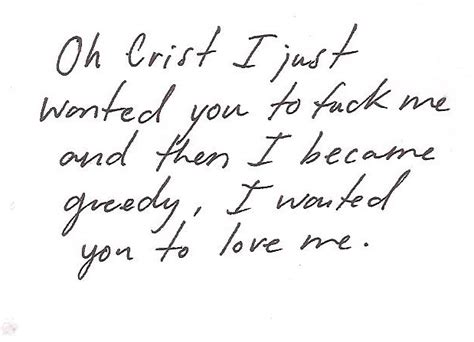 Oh Crist I just
wanted you to fuck me
and then I became
greedy, I wanted
you to love me.